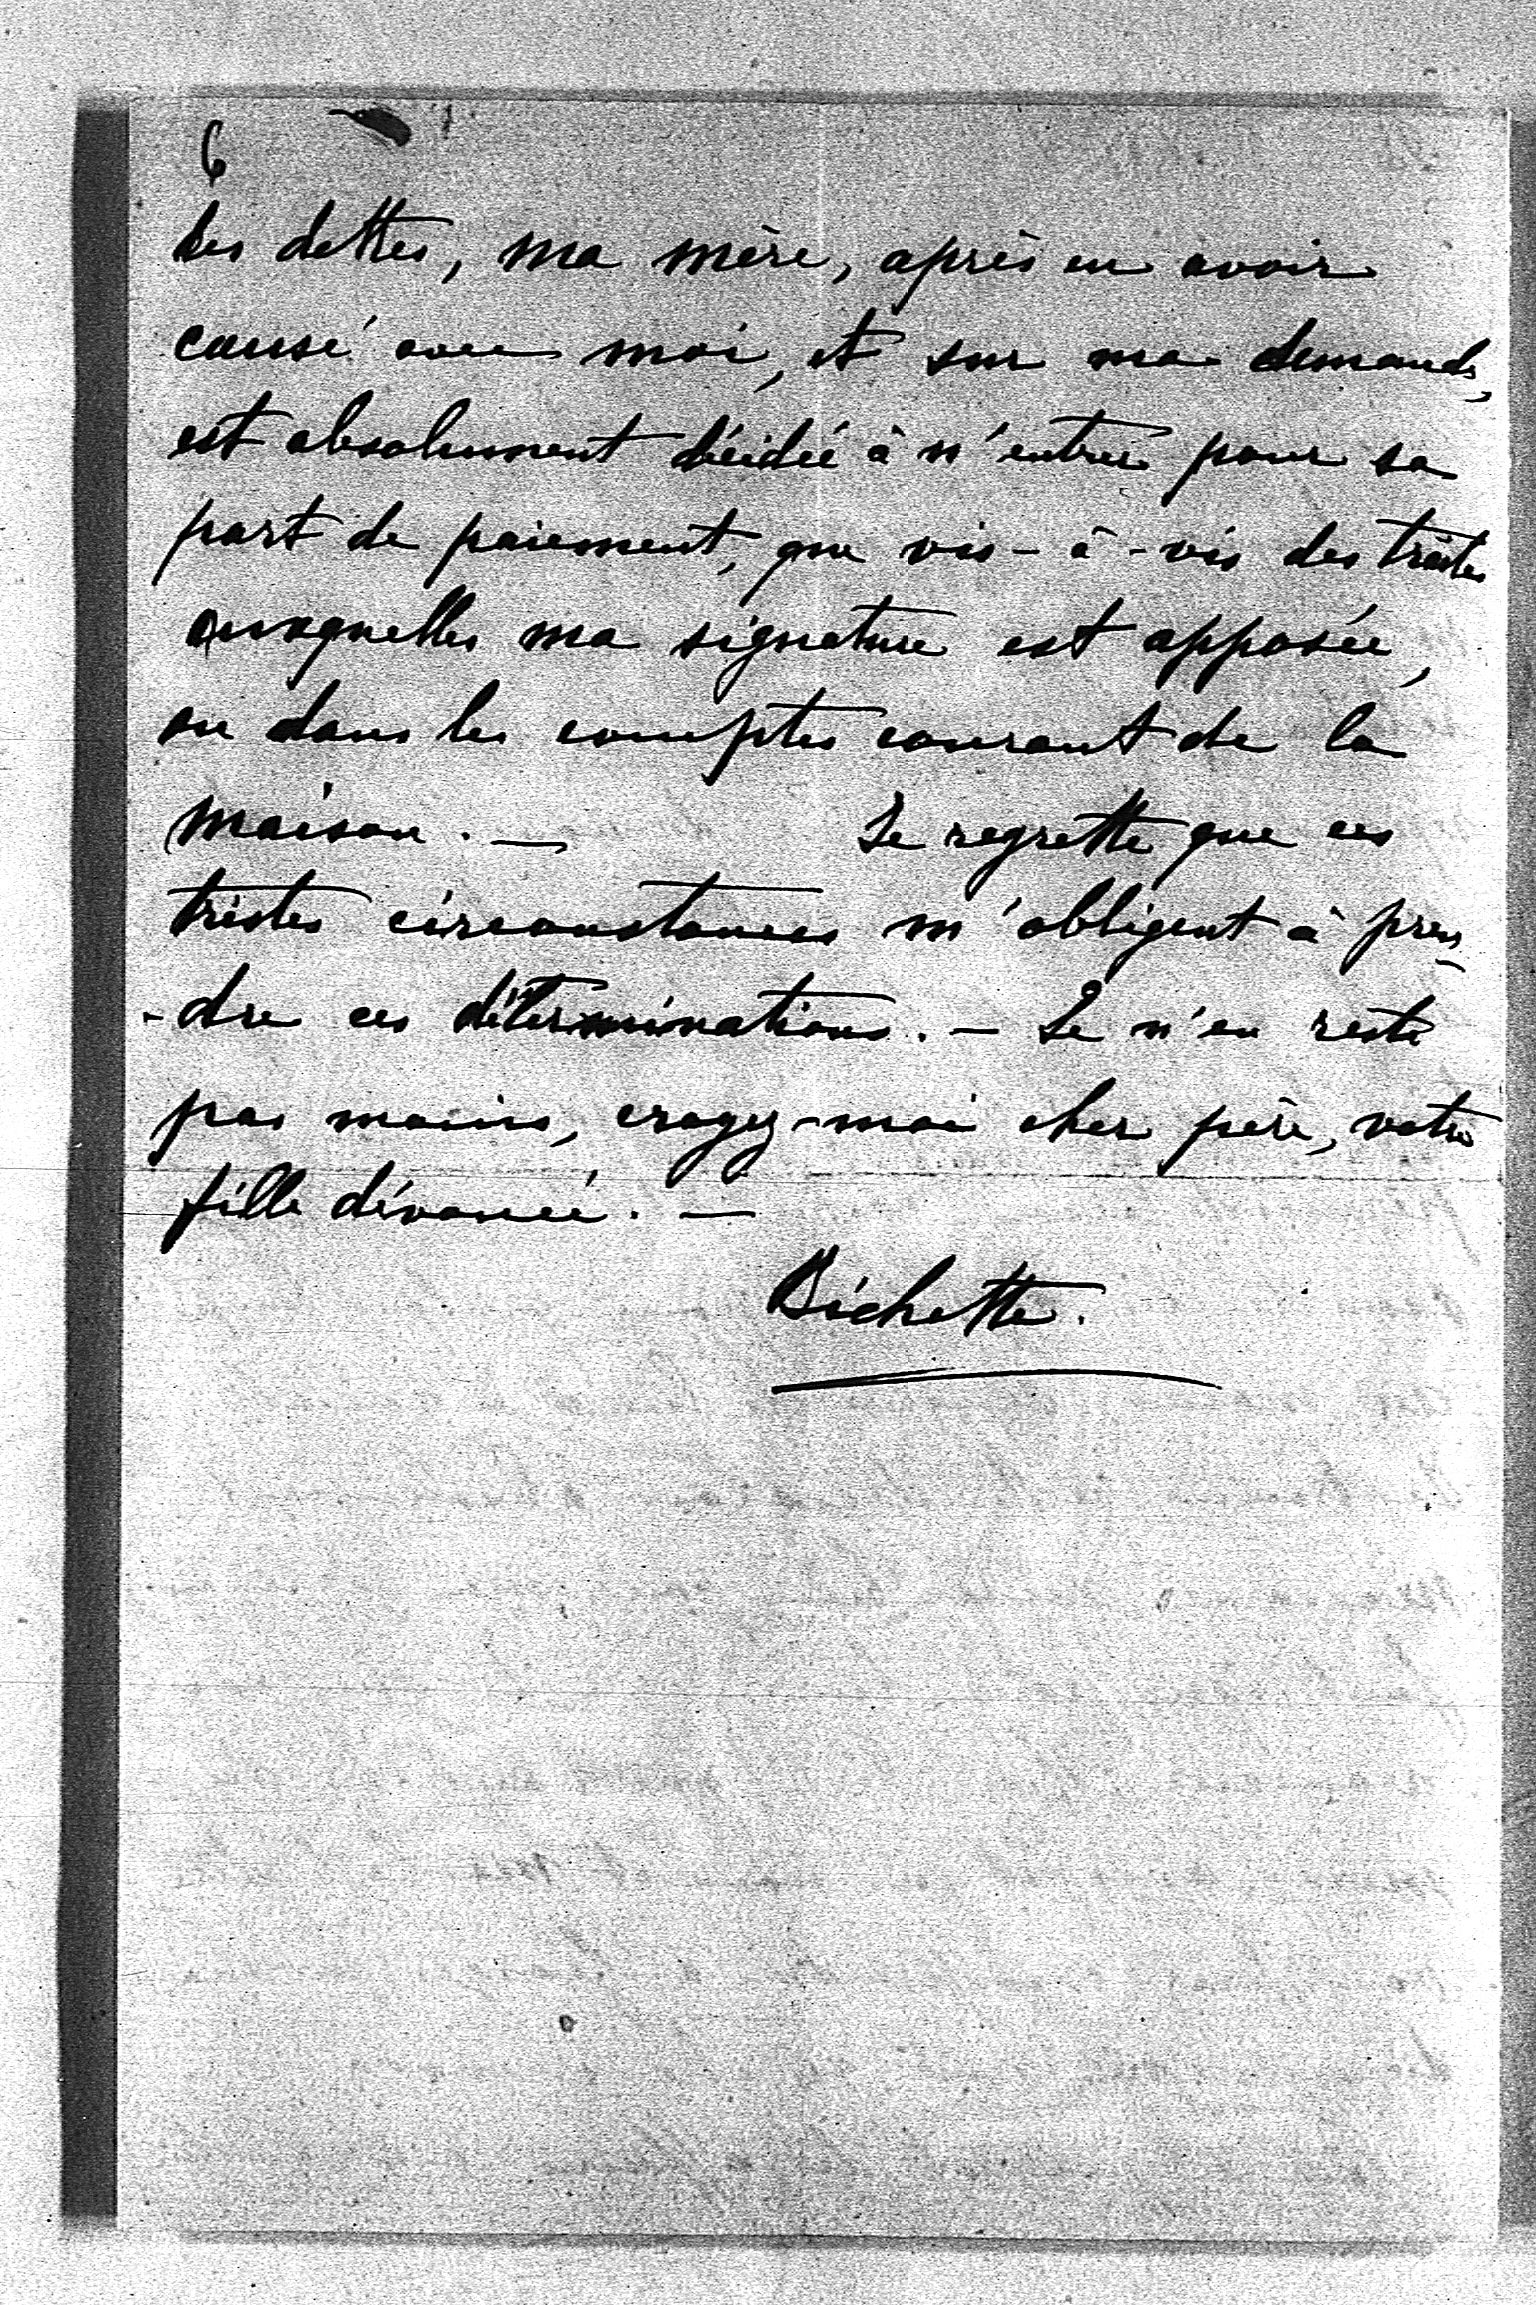 6
les dettes, ma mère, après en avoir
causé avec moi, et sur ma demande,
est absolument décidée à n'entrer pour sa
part de paiement, que vis-à-vis des traites
auxquelles ma signature est apposée,
ou dans les comptes courant de la
maison. — Je regrette que ces
tristes circonstances m'obligent à pren
-dre ces déterminations. — Je n'en reste
pas moins, croyez-moi cher père, votre
fille dévouée. —
Bichette.